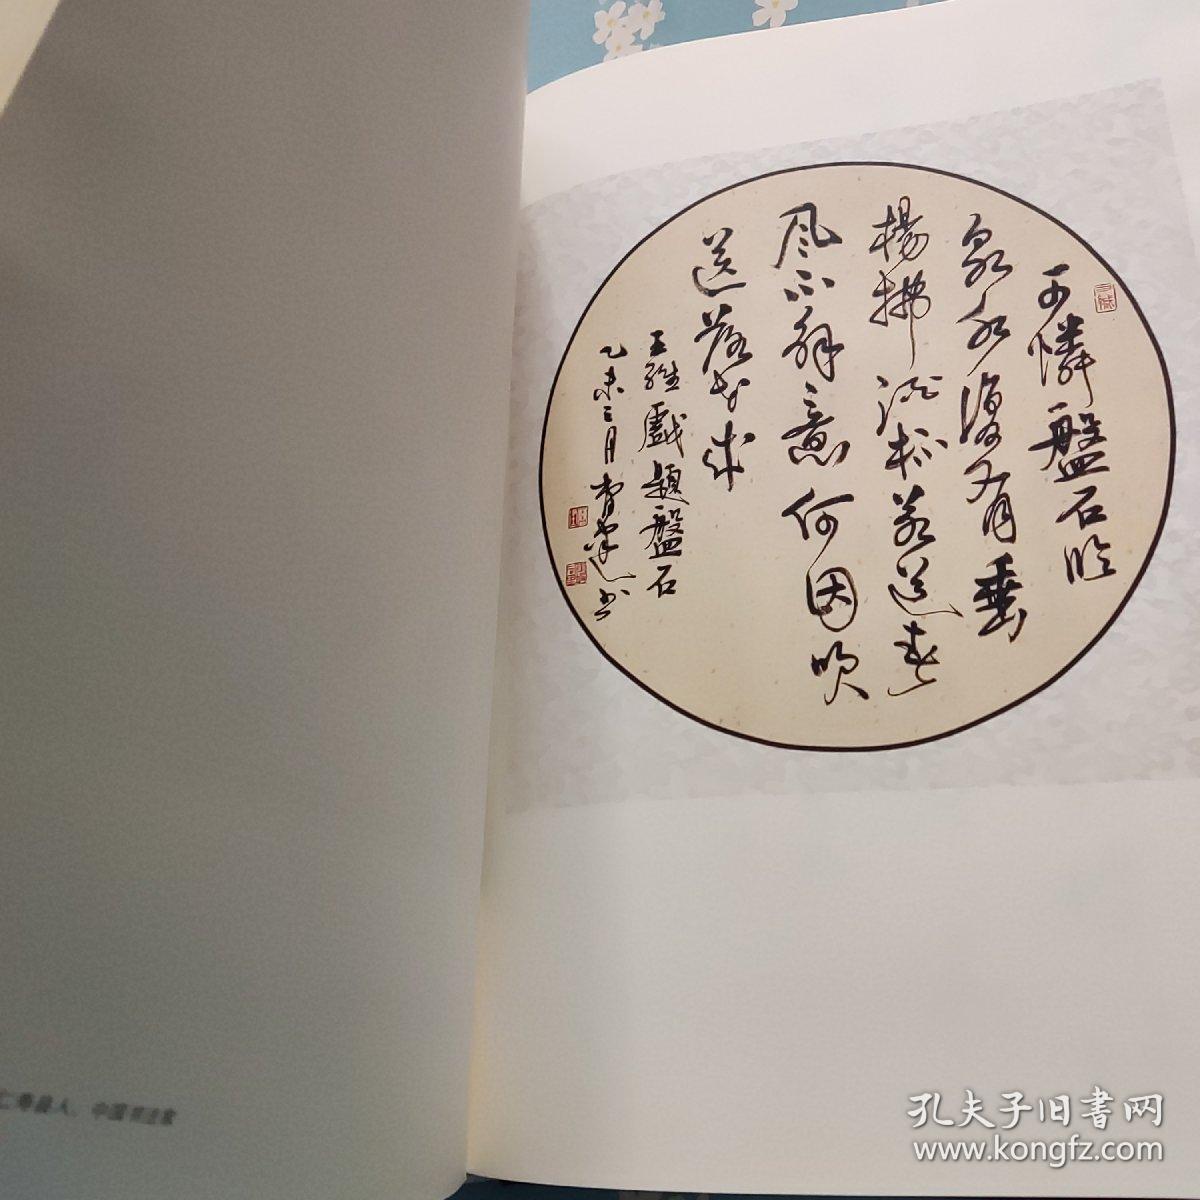 可憐盤石臨
泉水復有垂
楊拂酒杯若道春
风不解意何因吹
送落花来
王維戲題盤石
乙未三月 书
仁寿县人，中国书法家
孔夫子旧書网
www.kongfz.com